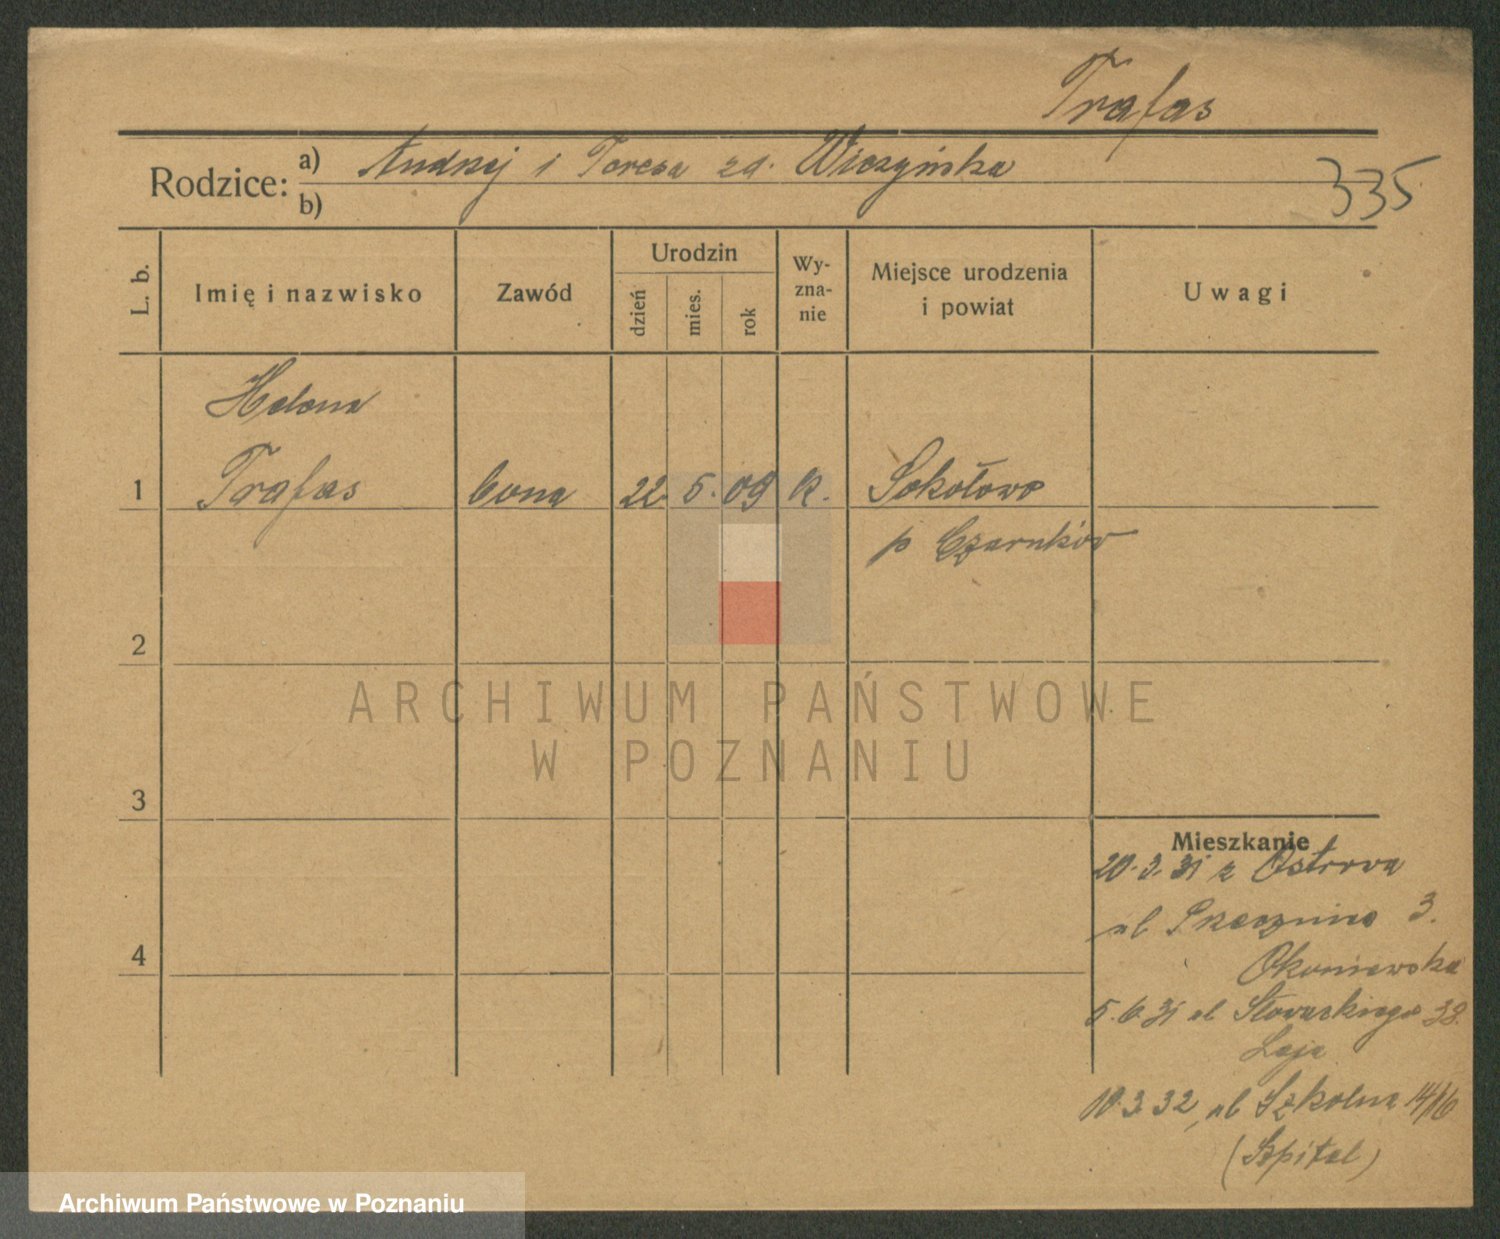 Trafas
Rodzice: a) Andrzej i Teresa zd. Wiczyńska
b)
335
L. b.
Imię i nazwisko
Zawód
Urodzin
dzień
mies.
rok
Wy-
zna-
nie
Miejsce urodzenia
i powiat
Uwagi
Helena
1 Trafas bona 22. 5. 09 k. Sokołowo
p Czarnków
2
ARCHIWUM PAŃSTWOWE
W POZNANIU
3
Mieszkanie
20.3.31 z Ostrowa
ul. 3.
4
Okoniewska
5.6.31 ul Słowackiego 38.
10.3.32, ul Szkolna 14/16
(Szpital)
Archiwum Państwowe w Poznaniu